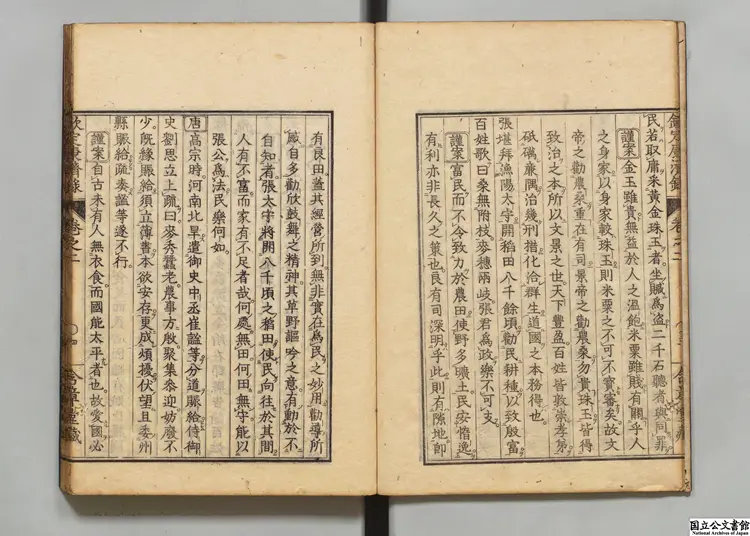 欽定康濟錄
卷之二
民若取庸采黃金珠玉者坐贓爲盗二千石聽者與同罪
謹案金玉雖貴無益於人之溫飽米粟雖賤有關乎人
之身家以身家較珠玉則米粟之不可不寶審矣故文
帝之勸農桒重在有司景帝之勸農桑勿貴珠玉皆得
致治之本所以文景之世天下豐盈百姓皆敦崇孝第
砥礪廉隅治幾刑措化洽群生道國之本務得也
張堪拜漁陽太守開稻田八千餘頃勸民耕種以致殷富
百姓歌曰桒無附枝麥穗兩岐張君爲政樂不可支
謹案富民而不令致力於農田使野多曠土民安惰逸
有利亦非長久之策也良有司深明乎此則有隙地即
有良田蓋其經營所到無非實在爲民之妙用勸導所
厰自多勸欣鼓舞之精神其草野謳吟之意有動於不
自知者張太守將開八千頃之稻田使民向往於其間
人有不富而家有不足者哉何處無田何田無守能以
張公爲法民樂何如
唐高宗時河南北旱遣御史中丞崔謐等分道賑給侍御
史劉思立上疏曰麥秀蠶老農事方殷聚集參迎妨廢不
少既緣賑給須立薄書本欲安存更成煩擾伏望且委州
縣賑給疏奏謐等遂不行
謹案自古未有人無衣食而國能太平者也故愛國必
欽定康濟錄
卷之二
國立公文書館
National Archives of Japan